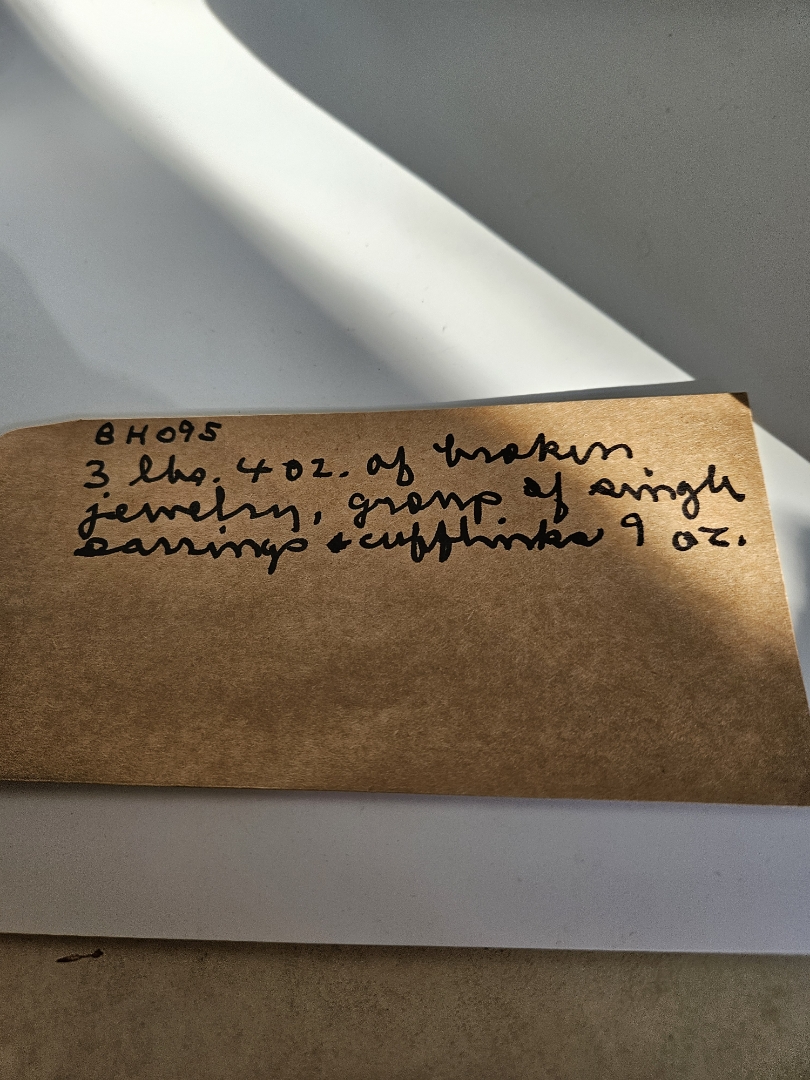 BH095
3 lbs. 4 oz. of broken
jewelry, group of single
earrings & cufflinks 9 oz.